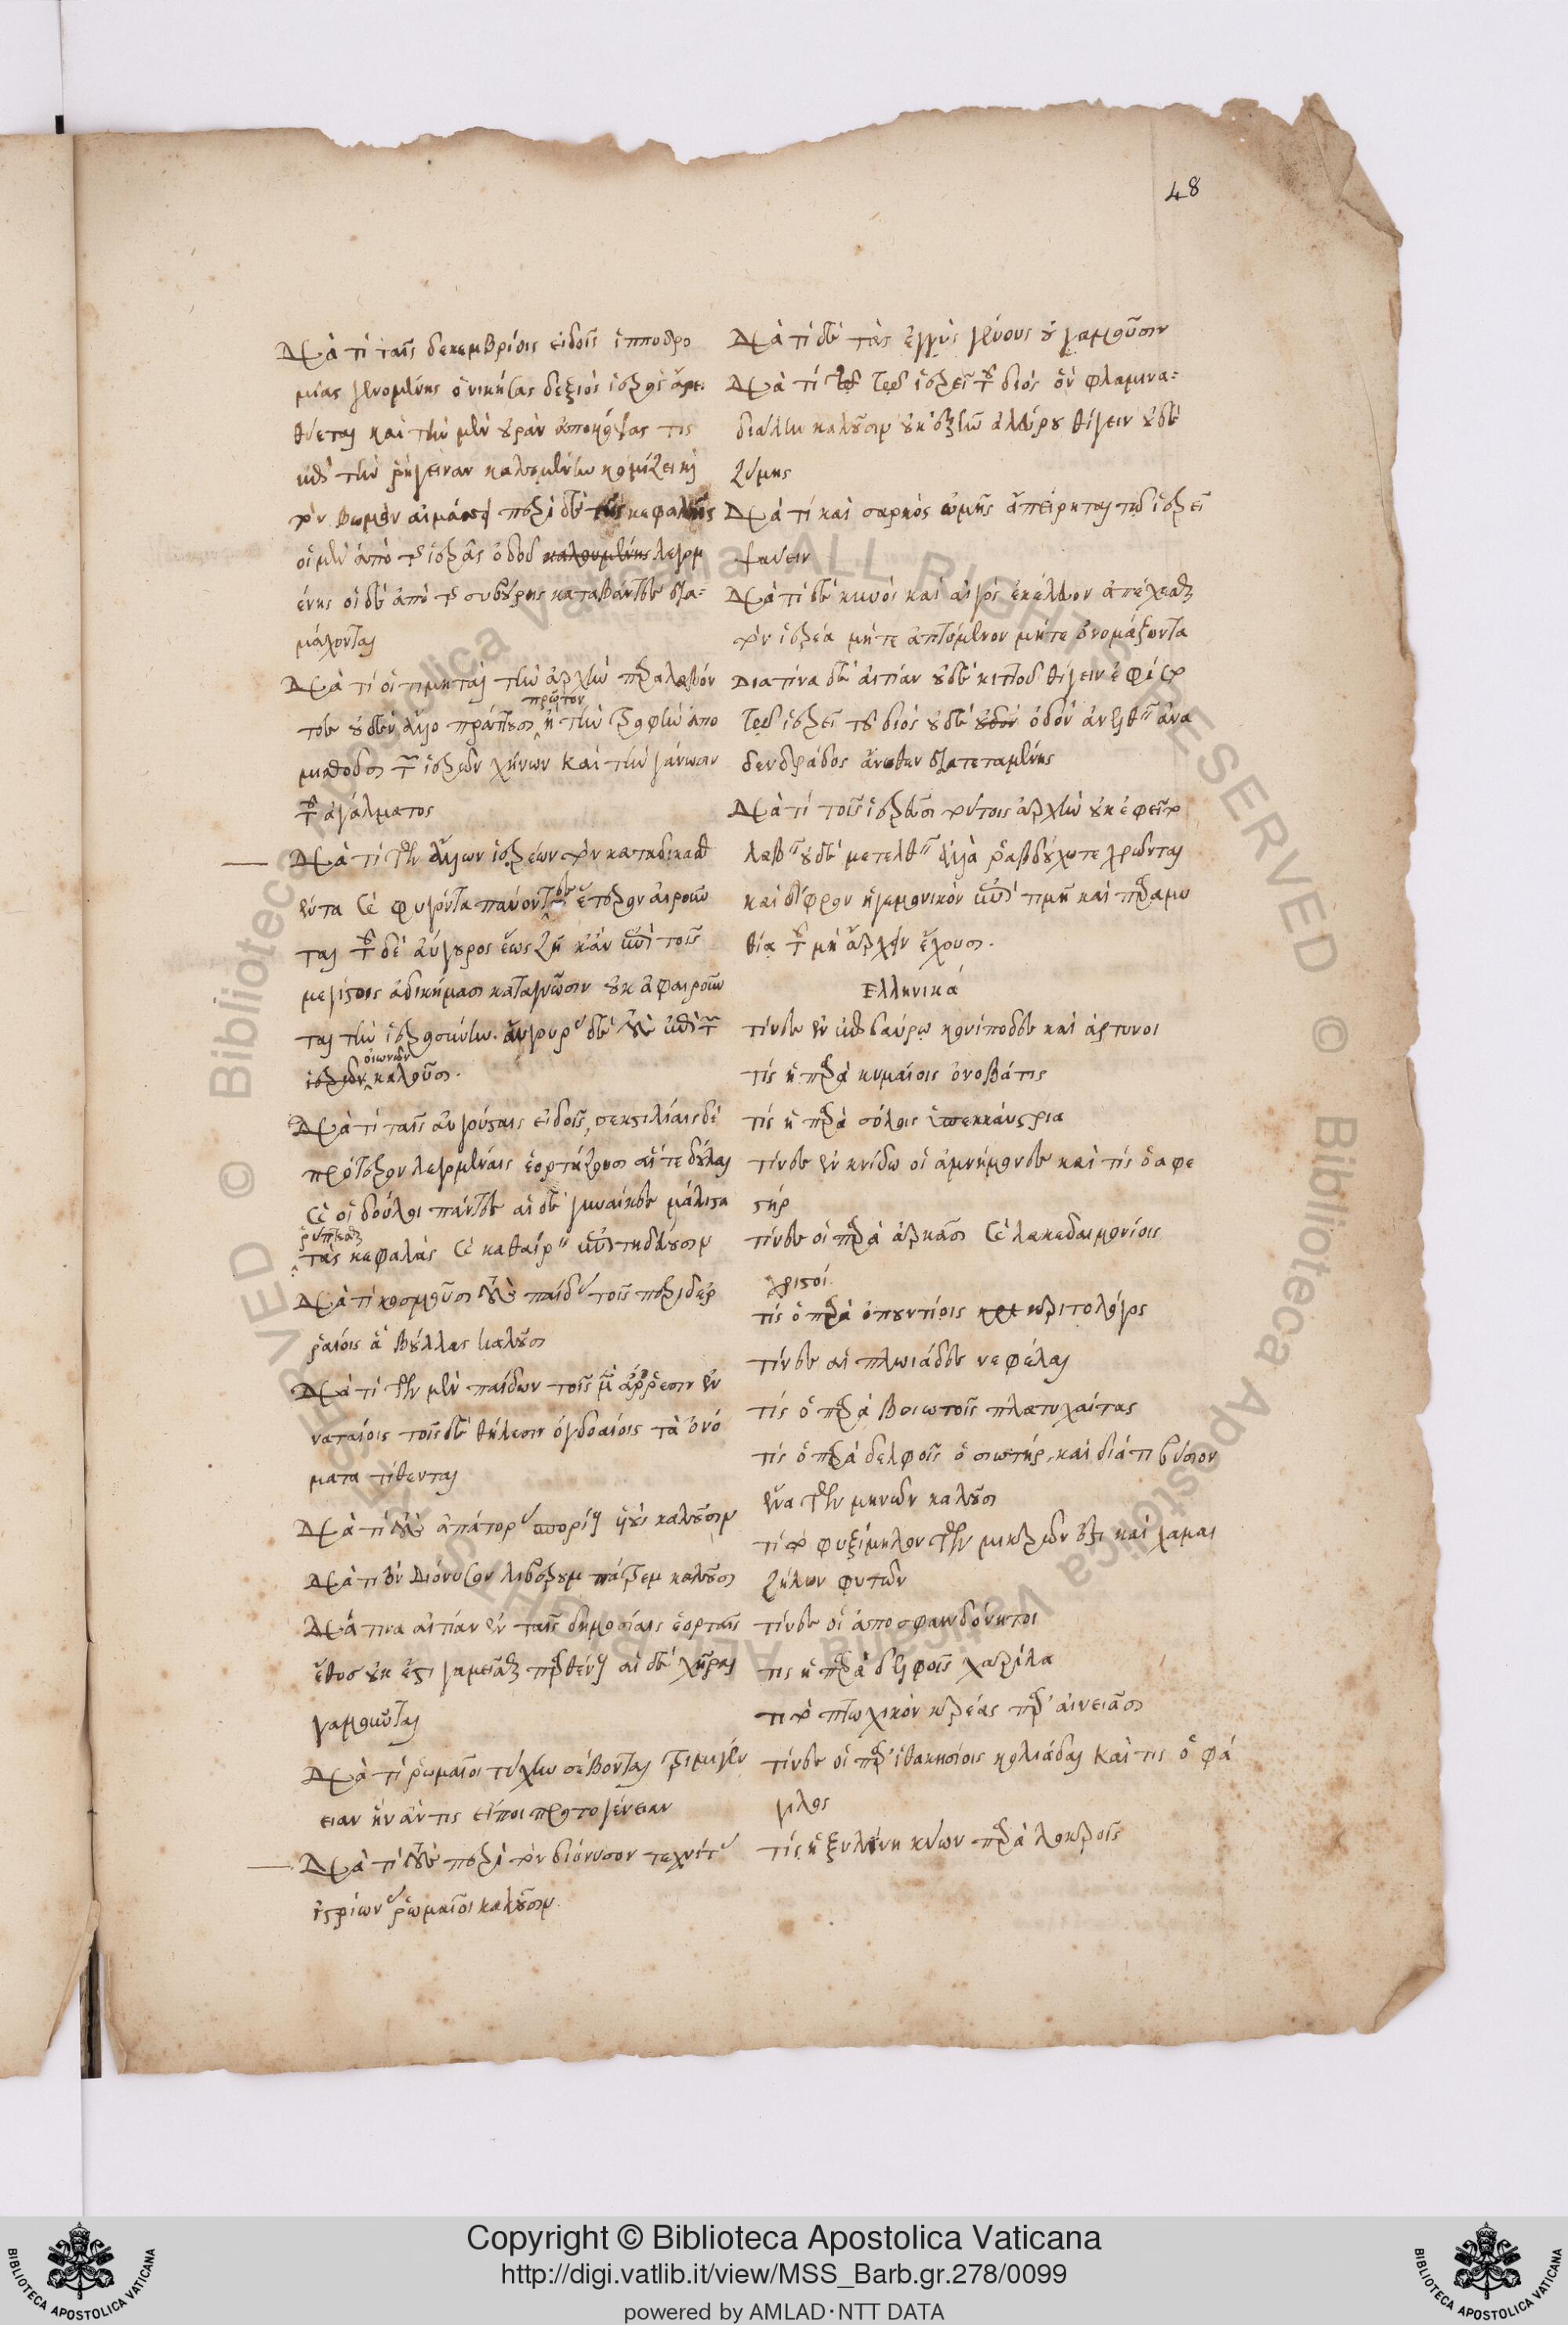 48
Διὰ τί ταῖς δεκεμβρίαις εἰδοῖς ἱπποδρο
μίας γενομένης ὁ νικήσας δεξιὸς ἱερὸς ἄρει
θύεται καὶ τὴν μὲν οὐρὰν ἀποκόψας τις
ἐπὶ τὴν ῥήγειναν καλουμένην κομίζει καὶ
τὸν βωμὸν αἱμάσσει περὶ δὲ τῆς κεφαλῆς
οἱ μὲν ἀπὸ τῆς ἱερᾶς ὁδοῦ καλουμένης λεγομ
ένης οἱ δὲ ἀπὸ τῆς συβούρης καταβάντες δια=
μάχονται
Διὰ τί οἱ τιμηταὶ τὴν ἀρχὴν παραλαβόν
πρῶτον
τες οὐδὲν ἄλλο πράττουσιν ἢ τὴν τροφὴν ἀπο
μισθοῦσι τῶν ἱερῶν χηνῶν καὶ τὴν γάνωσιν
τοῦ ἀγάλματος
Διὰ τί τῶν ἄλλων ἱερέων τὸν καταδικασθ
έντα καὶ φυγόντα παύοντες ἕτερον αἱροῦν
ται τοῦ δὲ αὔγουρος ἕως ζῇ κἂν ἐπὶ τοῖς
μεγίστοις ἀδικήμασι καταγνῶσιν οὐκ ἀφαιροῦν
ται τὴν ἱερωσύνην. αὔγουρας δὲ τοὺς ἐπὶ τῶν
οἰωνῶν
ἱερῶν καλοῦσι.
Διὰ τί ταῖς αὐγούσταις εἰδοῖς, σεξτιλίαις δὲ
πρότερον λεγομέναις ἑορτάζουσιν αἵ τε δοῦλαι
καὶ οἱ δοῦλοι πάντες αἱ δὲ γυναῖκες μάλιστα
ῥύπτεσθαι
τὰς κεφαλὰς καὶ καθαίρειν ἐπιτηδεύουσιν
Διὰ τί κοσμοῦσι τοὺς παῖδας τοῖς περιδερ
ραίοις ἃ βούλλας καλοῦσι
Διὰ τί τῶν μὲν παίδων τοῖς μὲν ἄρρεσιν ἐν
ναταίοις τοῖς δὲ θήλεσιν ὀγδοαίοις τὰ ὀνό
ματα τίθενται
Διὰ τί τοὺς ἀπάτορας σπορίους υἱοὺς καλοῦσιν
Διὰ τί τὸν Διόνυσον λίβερουμ πάτρεμ καλοῦσι
Διὰ τίνα αἰτίαν ἐν ταῖς δημοσίαις ἑορταῖς
ἔθος οὐκ ἔστι γαμεῖσθαι παρθένους αἱ δὲ χῆραι
γαμοῦνται
Διὰ τί ῥωμαῖοι τύχην σέβονται πριμιγέν
ειαν ἣν ἄν τις εἴποι πρωτογένειαν
Διὰ τί τοὺς περὶ τὸν διόνυσον τεχνίτας
ἱστρίωνας ῥωμαῖοι καλοῦσιν
Διὰ τί δὲ τὰς ἐγγὺς γένους οὐ γαμοῦσιν
Διὰ τί τῷ ἱερεῖ τοῦ διὸς ὃν φλαμινα=
διάλιν καλοῦσιν οὐκ ἐξῆν ἀλεύρου θίγειν οὐδὲ
ζύμης
Διὰ τί καὶ σαρκὸς ὠμῆς ἀπείρηται τῷ ἱερεῖ
ψαύειν
Διὰ τί δὲ κυνὸς καὶ αἰγὸς ἐκέλευον ἀπέχεσθαι
τὸν ἱερέα μήτε ἁπτόμενον μήτε ὀνομάζοντα
Διατίνα δὲ αἰτίαν οὐδὲ κιττοῦ θίγειν ἐφεῖτο
τῷ ἱερεῖ τοῦ διὸς οὐδὲ ὁδὸν διελθεῖν ἀνα
δενδράδος ἄνωθεν διατεταμένης
Διὰ τί τοῖς ἱερεῦσι τούτοις ἀρχὴν οὐκ ἐφεῖτο
λαβεῖν οὐδὲ μετελθεῖν ἀλλὰ ῥαβδούχῳ τε χρῶνται
καὶ δίφρον ἡγεμονικὸν ἐπὶ τιμῇ καὶ παραμυ
θίᾳ τοῦ μὴ ἄρχειν ἔχουσι.
Ελληνικά
τίνες ἐν ἐπιδαύρῳ κονίποδες καὶ ἄρτυνοι
τίς ἡ παρὰ κυμαίοις ὀνοβάτις
τίς ἡ παρὰ σόλοις ὑπεκκαύστρια
τίνες ἐν κνίδῳ οἱ ἀμνήμονες καὶ τίς ὁ ἀφε
στήρ
τίνες οἱ παρὰ ἀρκάσι καὶ λακεδαιμονίοις
χρηστοί
τίς ὁ παρὰ ὀπουντίοις κριτολόγος
τίνες αἱ πλωιάδες νεφέλαι
τίς ὁ παρὰ βοιωτοῖς πλατυχαίτας
τίς ὁ παρὰ δελφοῖς ὁσιωτήρ, καὶ διά τι βύσιον
ἕνα τῶν μηνῶν καλοῦσι
τί τὸ φυξίμηλον τῶν μικρῶν ἐστι καὶ χαμαι
ζήλων φυτῶν
τίνες οἱ ἀποσφενδόνητοι
τις ἡ παρὰ δελφοῖς χαρίλα
τι τὸ πτωχικὸν κρέας παρ' αἰνειᾶσι
τίνες οἱ παρ' ἰθακησίοις κολιάδαι καὶ τις ὁ φά
γιλος
τίς ἡ ξυλίνη κύων παρὰ λοκροῖς
© Biblioteca Apostolica Vaticana ALL RIGHTS RESERVED © Biblioteca Apostolica Vaticana ALL RIGHTS RESERVED
Copyright © Biblioteca Apostolica Vaticana
http://digi.vatlib.it/view/MSS_Barb.gr.278/0099
powered by AMLAD·NTT DATA
BIBLIOTECA APOSTOLICA VATICANA
BIBLIOTECA APOSTOLICA VATICANA